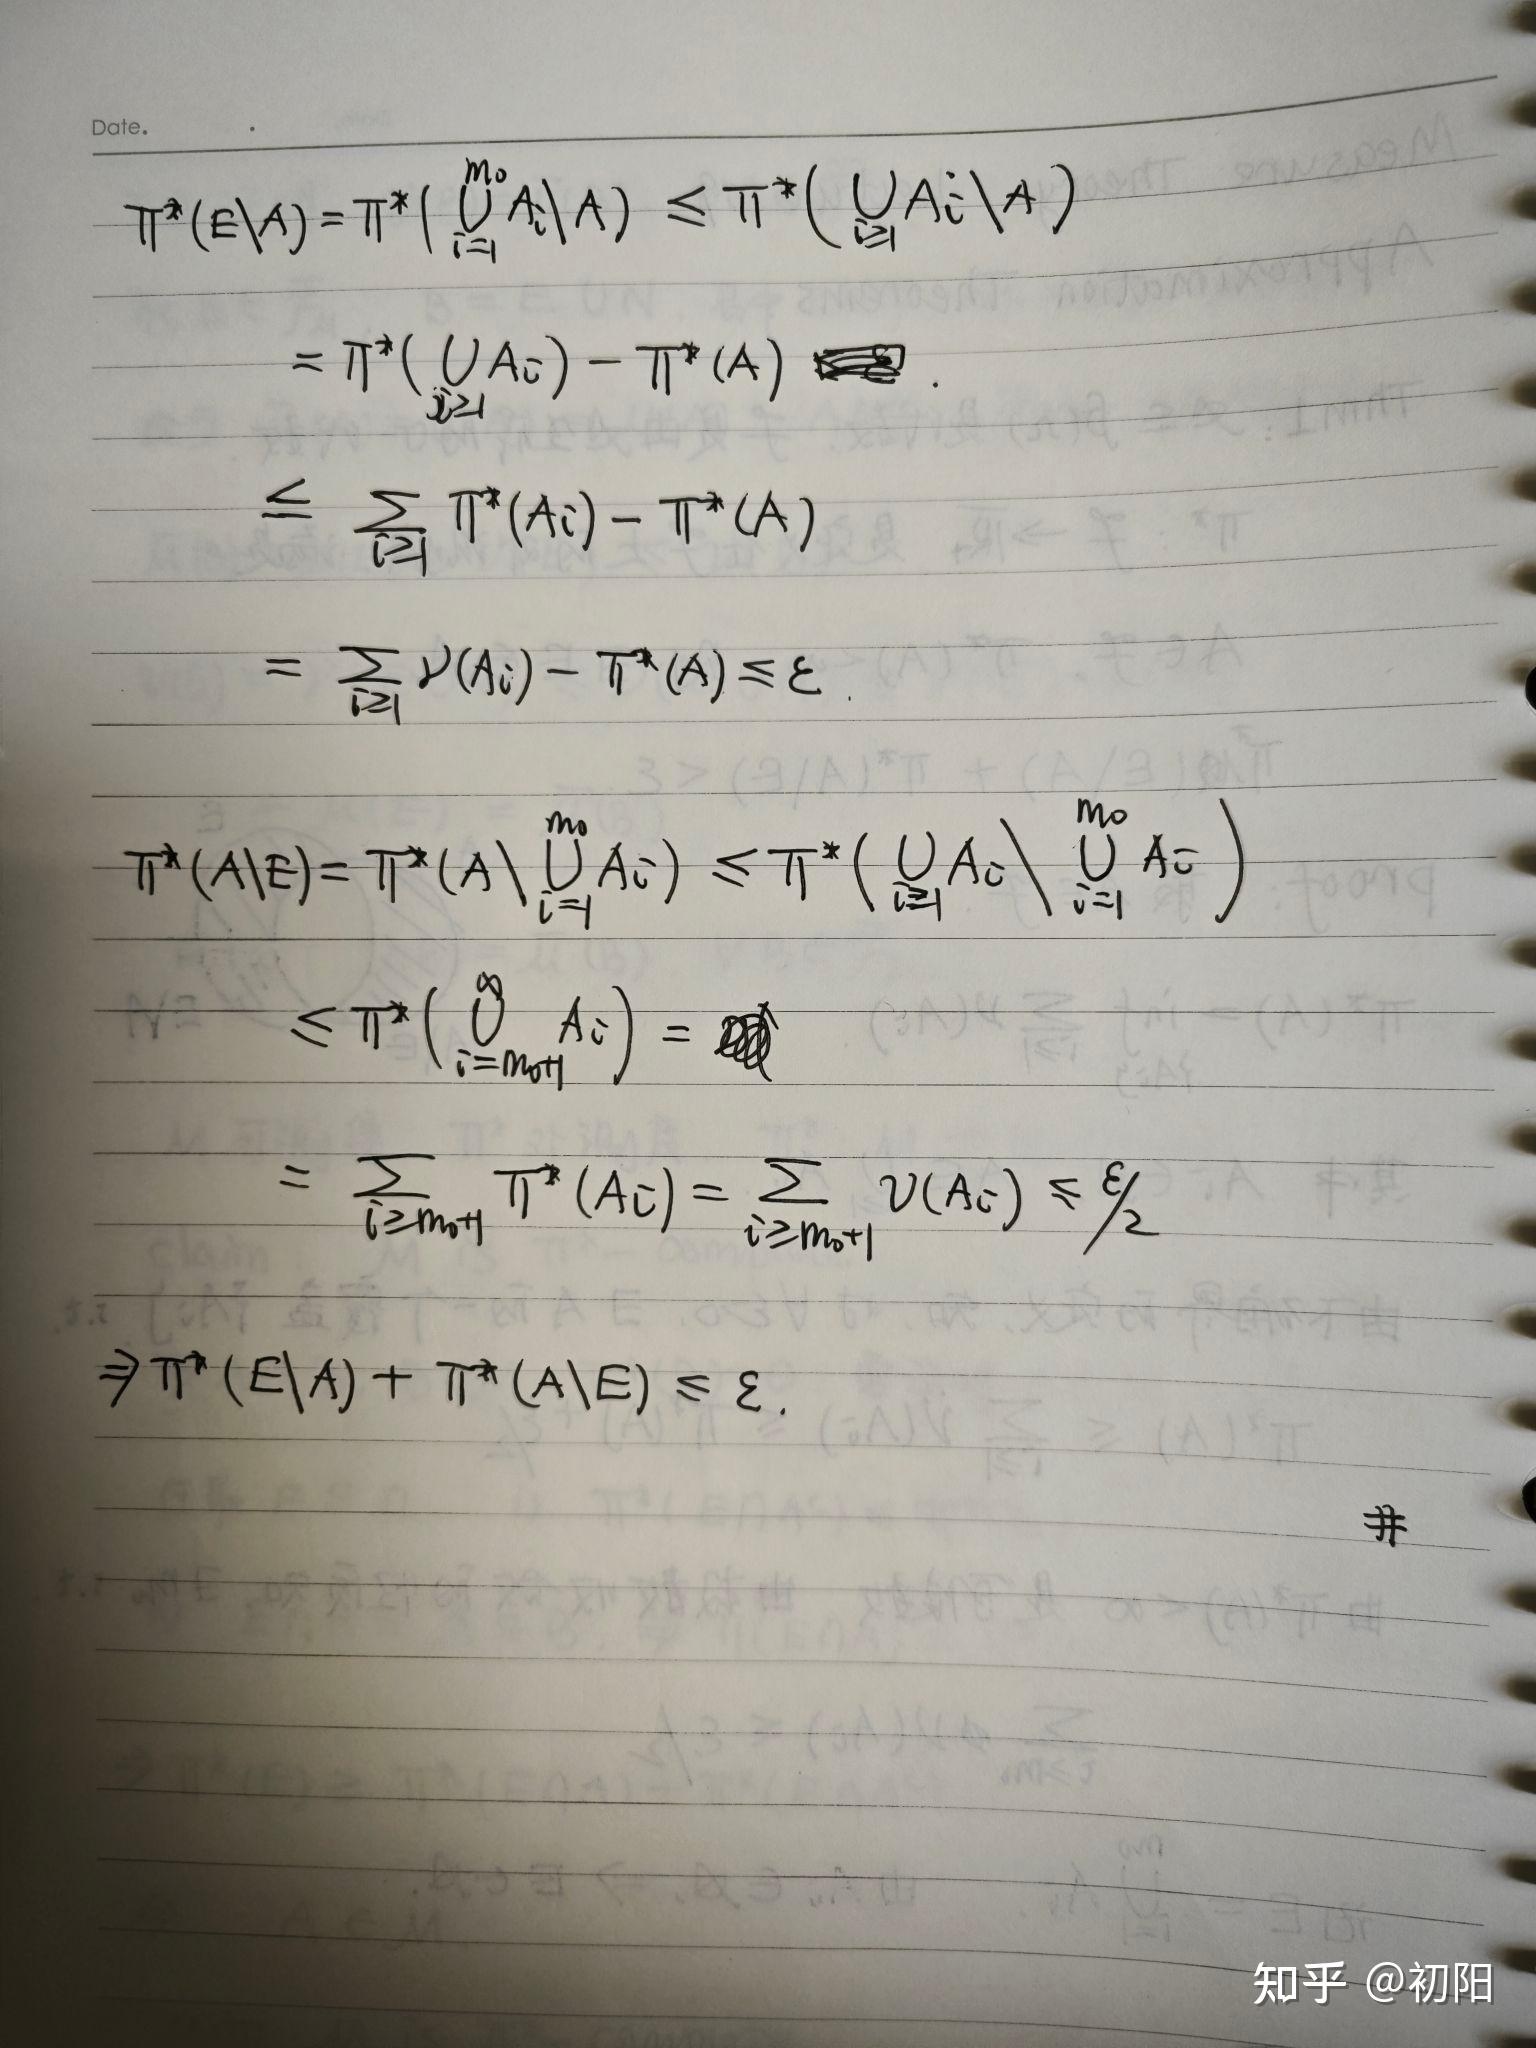 Date.
π*(E\A) = π*(⋃_{i=1}^{m₀} Aᵢ\A) ≤ π*(⋃_{i≥1} Aᵢ\A)
= π*(⋃_{i≥1} Aᵢ) − π*(A) .
≤ ∑_{i≥1} π*(Aᵢ) − π*(A)
= ∑_{i≥1} ν(Aᵢ) − π*(A) ≤ ε .
π*(A\E) = π*(A\⋃_{i=1}^{m₀} Aᵢ) ≤ π*(⋃_{i≥1} Aᵢ \ ⋃_{i=1}^{m₀} Aᵢ)
≤ π*(⋃_{i=m₀+1}^{∞} Aᵢ) =
= ∑_{i≥m₀+1} π*(Aᵢ) = ∑_{i≥m₀+1} ν(Aᵢ) ≤ ε/2
⇒ π*(E\A) + π*(A\E) ≤ ε .
#
知乎 @初阳